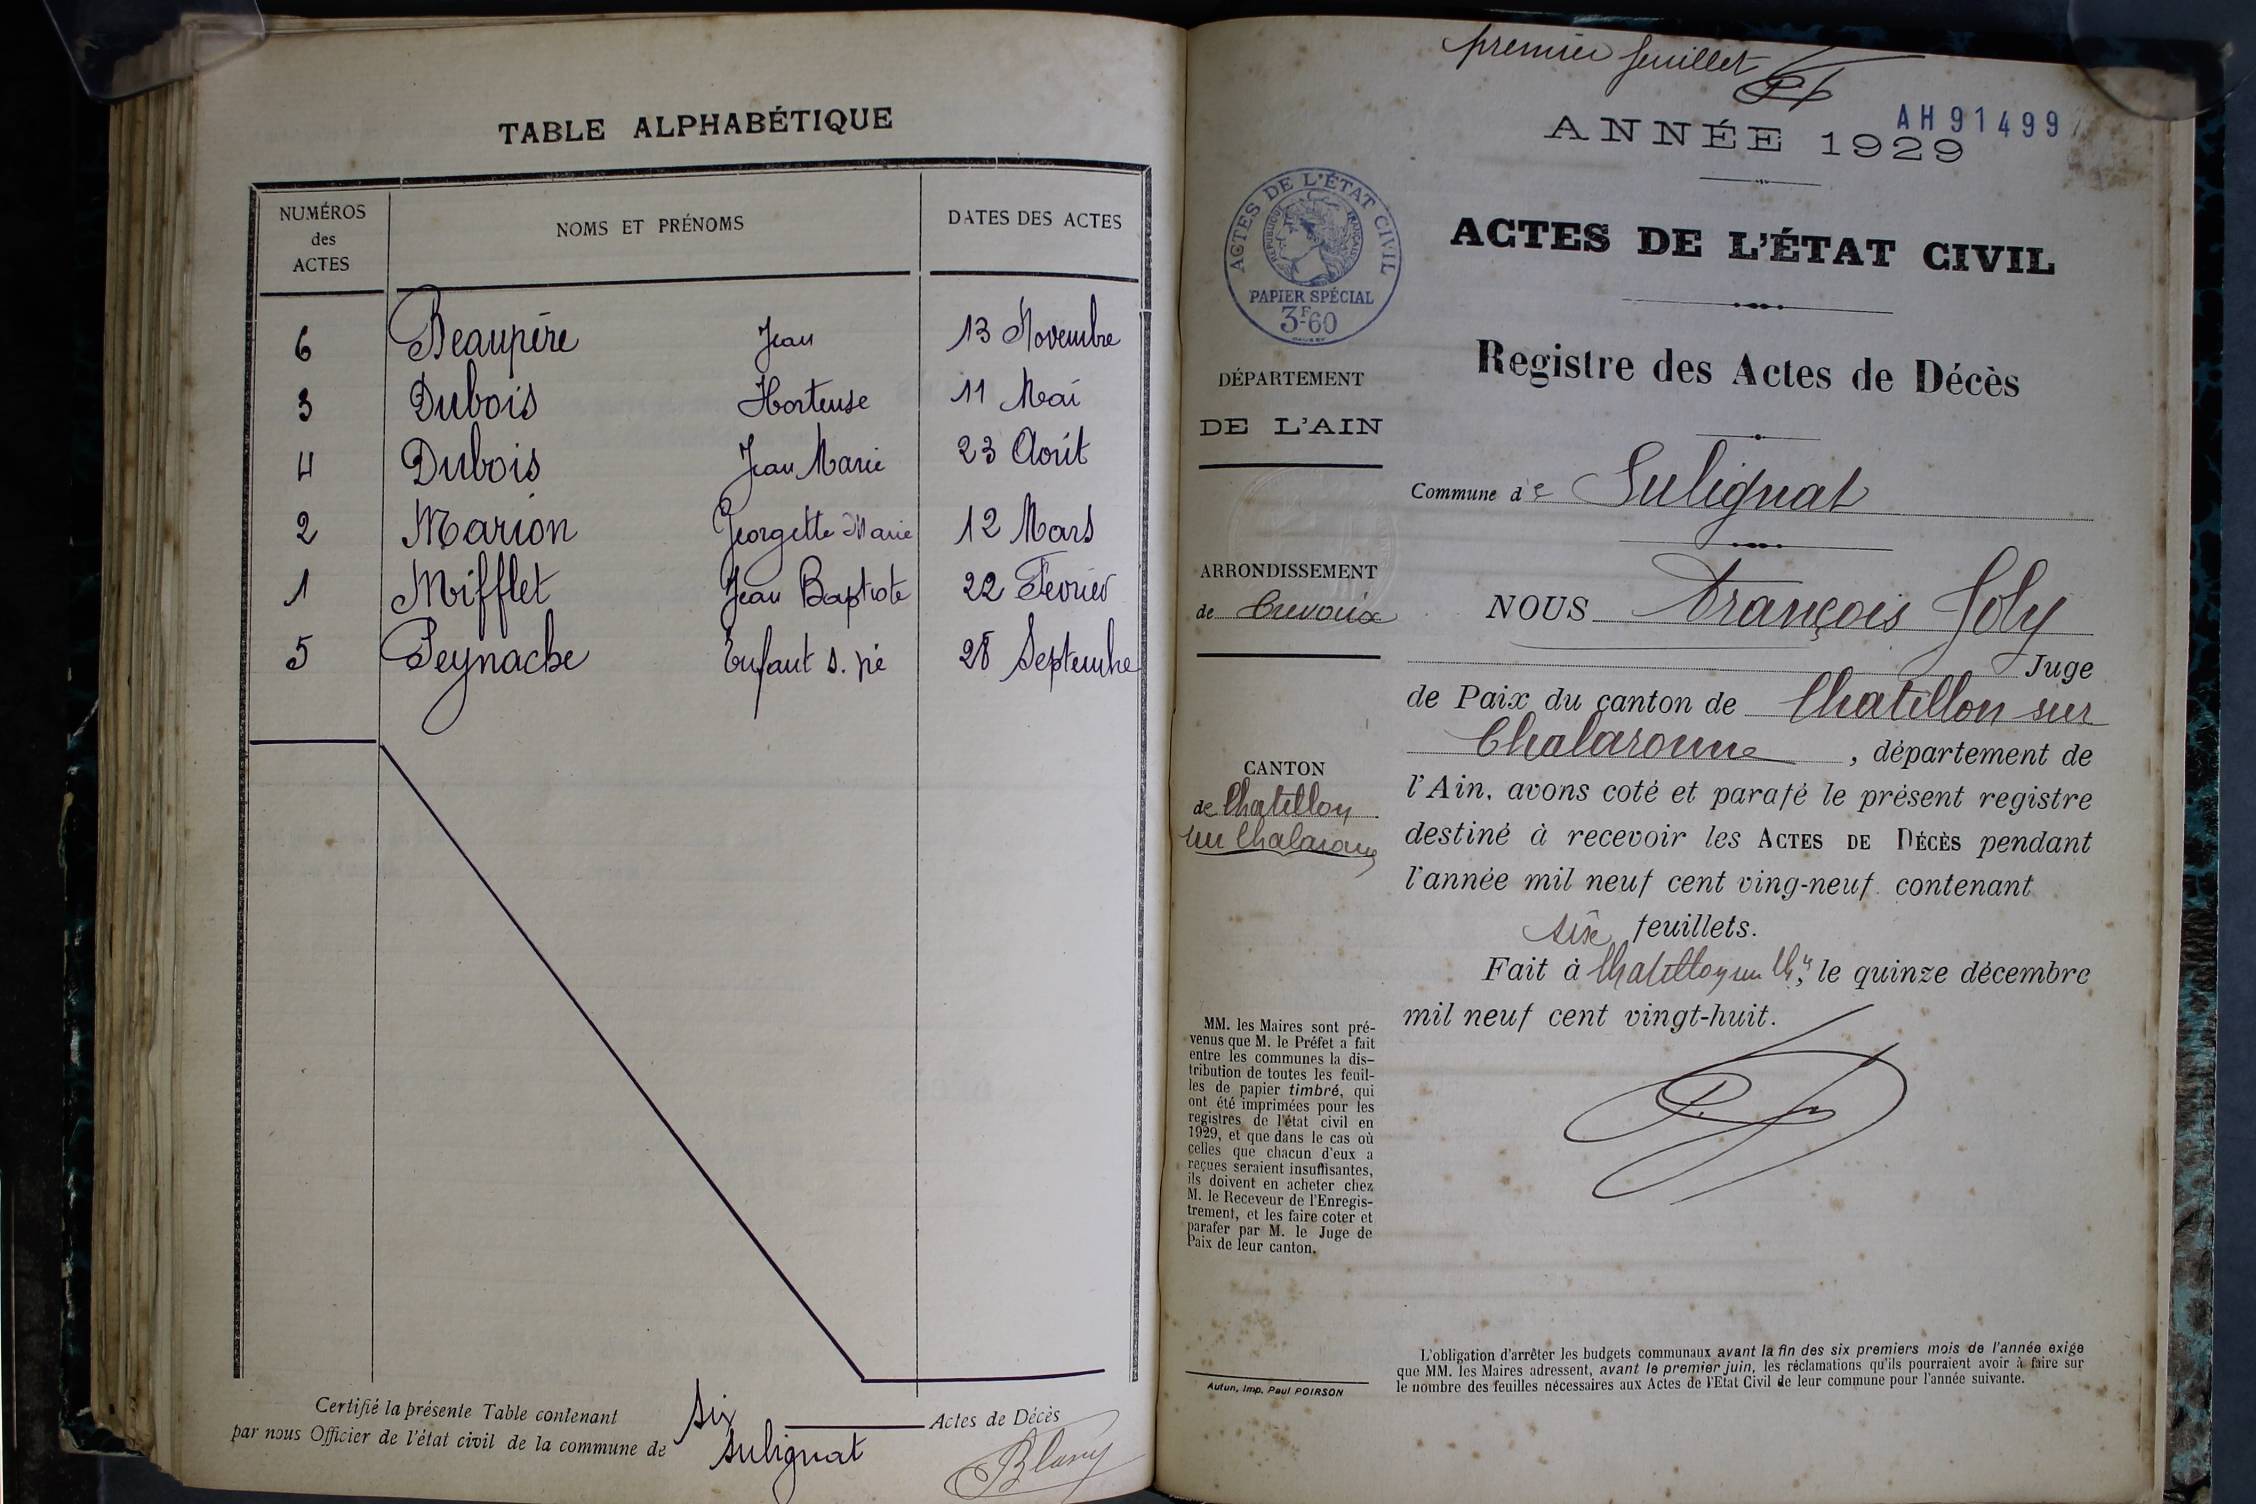 TABLE ALPHABÉTIQUE
NUMÉROS des ACTES NOMS ET PRÉNOMS DATES DES ACTES
6 Beaupère Jean 13 Novembre
3 Dubois Hortense 11 Mai
4 Dubois Jean Marie 23 Août
2 Marion Georgette Marie 12 Mars
1 Mifflet Jean Baptiste 22 Fevrier
5 Peynache Enfant s. né 28 Septembre
Certifié la présente Table contenant six Actes de Décès
par nous Officier de l'état civil de la commune de Sulignat
premier feuillet
AH91499
ANNÉE 1929
ACTES DE L'ÉTAT CIVIL
RÉPUBLIQUE FRANÇAISE
PAPIER SPÉCIAL
3F60
ACTES DE L'ÉTAT CIVIL
Registre des Actes de Décès
DÉPARTEMENT
DE L'AIN
Commune de Sulignat
ARRONDISSEMENT
de Trevoux
CANTON
de Chatillon
sur Chalaronne
NOUS François Joly
Juge
de Paix du canton de Chatillon sur
Chalaronne, département de
l'Ain, avons coté et parafé le présent registre
destiné à recevoir les ACTES DE DÉCÈS pendant
l'année mil neuf cent ving-neuf contenant
six feuillets.
Fait à Chatillon sur Ch, le quinze décembre
mil neuf cent vingt-huit.
MM. les Maires sont pré-
venus que M. le Préfet a fait
entre les communes la dis-
tribution de toutes les feuil-
les de papier timbré, qui
ont été imprimées pour les
registres de l'état civil en
1929, et que dans le cas où
celles que chacun d'eux a
reçues seraient insuffisantes,
ils doivent en acheter chez
M. le Receveur de l'Enregis-
trement, et les faire coter et
parafer par M. le Juge de
Paix de leur canton.
Autun, Imp. Paul POIRSON
L'obligation d'arrêter les budgets communaux avant la fin des six premiers mois de l'année exige
que MM. les Maires adressent, avant le premier juin, les réclamations qu'ils pourraient avoir à faire sur
le nombre des feuilles nécessaires aux Actes de l'Etat Civil de leur commune pour l'année suivante.